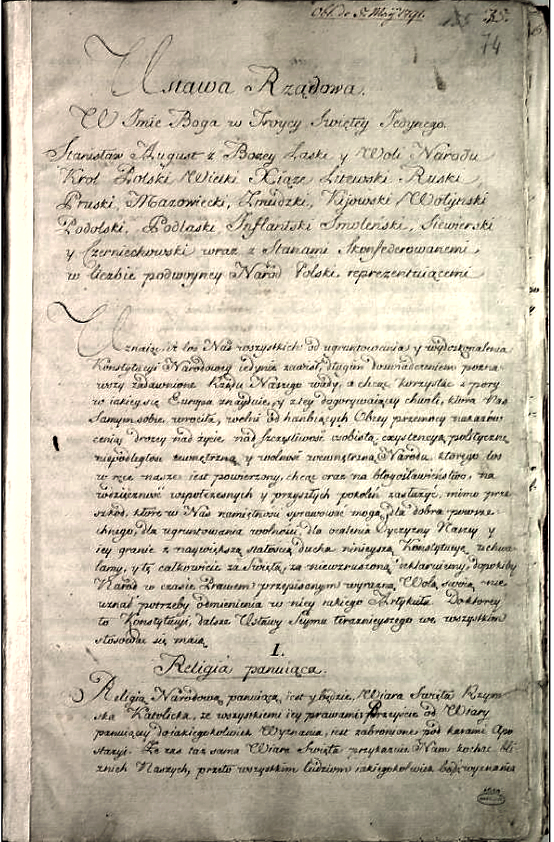 Obl. de 5. Maij 1791.
35.
74
Ustawa Rządowa.
W Imie Boga w Troycy Swiętey Jedynego.
Stanisław August z Bozey Łaski y Woli Narodu
Krol Polski Wielki Xiąze Litewski Ruski
Pruski, Mazowiecki, Zmudzki, Kijowski Wołynski
Podolski, Podlaski Inflantski Smoleński, Siewierski
y Czerniechowski wraz z Stanami Skonfederowanemi,
w liczbie podwoyney Naród Polski reprezentuiącemi
Uznaiąc, iż los Nas wszystkich od ugruntowania y wydoskonalenia
Konstytucyi Narodowey iedynie zawisł, długim doswiadczeniem pozna-
wszy zadawnione Rządu Naszego wady, a chcąc korzystac z pory
w iakiey się Europa znayduie, y z tey dogorywaiącey chwili, ktora Nas
Samym sobie wrociła, wolni od hanbiących Obcey przemocy nakazow
ceniąc drozey nad zycie nad szczęsliwosc osobistą exystencyą polityczną
niepodległosc zewnętrzną y wolnosc wewnętrzną Narodu, ktorego los
w ręce nasze iest powierzony, chcąc oraz na błogosławieństwo, na
wdzięcznosc wspołczesnych y przyszłych pokoleń zasłuzyc, mimo prze-
szkod, ktore w Nas namiętnosci sprawowac mogą, dla dobra powsze-
chnego, dla ugruntowania wolnosci, dla ocalenia Oyczyzny Naszey y
iey granic z naywiększą stałoscią ducha ninieyszą Konstytucyę uchwa-
lamy, y tę całkowicie za Swiętą, za niewzruszoną deklaruiemy, dopokiby
Narod w czasie Prawem przepisanym wyrazną Wolą swoią nie
uznał potrzeby odmienienia w niey iakiego Artykułu. Do ktorey
to Konstytucyi, dalsze Ustawy Seymu teraznieyszego we wszystkim
stosowac się maią
I.
Religia panuiąca.
Religią Narodową panuiącą iest y będzie Wiara Swięta Rzym-
ska Katolicka, ze wszystkiemi iey prawami; Przeyscie od Wiary
panuiącey do iakiegokolwiek Wyznania, iest zabronione pod karami Apo
stazyi. Ze zas taz sama Wiara Swięta przykazuie Nam kochac bli-
znich Naszych, przeto wszystkim ludziom iakiegokolwiek bądź wyznania